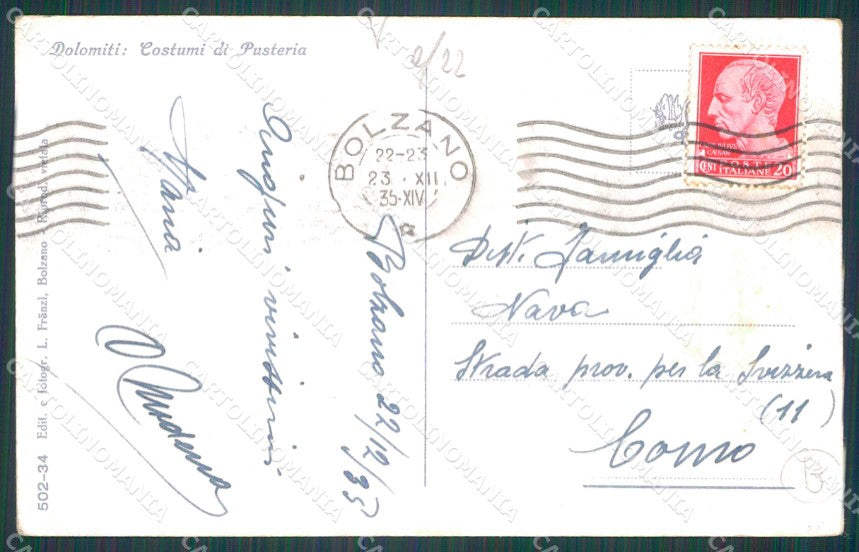 Dolomiti: Costumi di Pusteria
2/22
BOLZANO
22-23
23 . XII
35-XIV
CENT ITALIANE 20
Bolzano 22/12/35
Auguri vivissimi
Maria
502-34 Edit. e fotogr. L. Fränzl, Bolzano - Riprod. vietata
Dist. Famiglia
Nava
Strada prov. per la Svizzera
(11)
Como
B
CARTOLINOMANIA